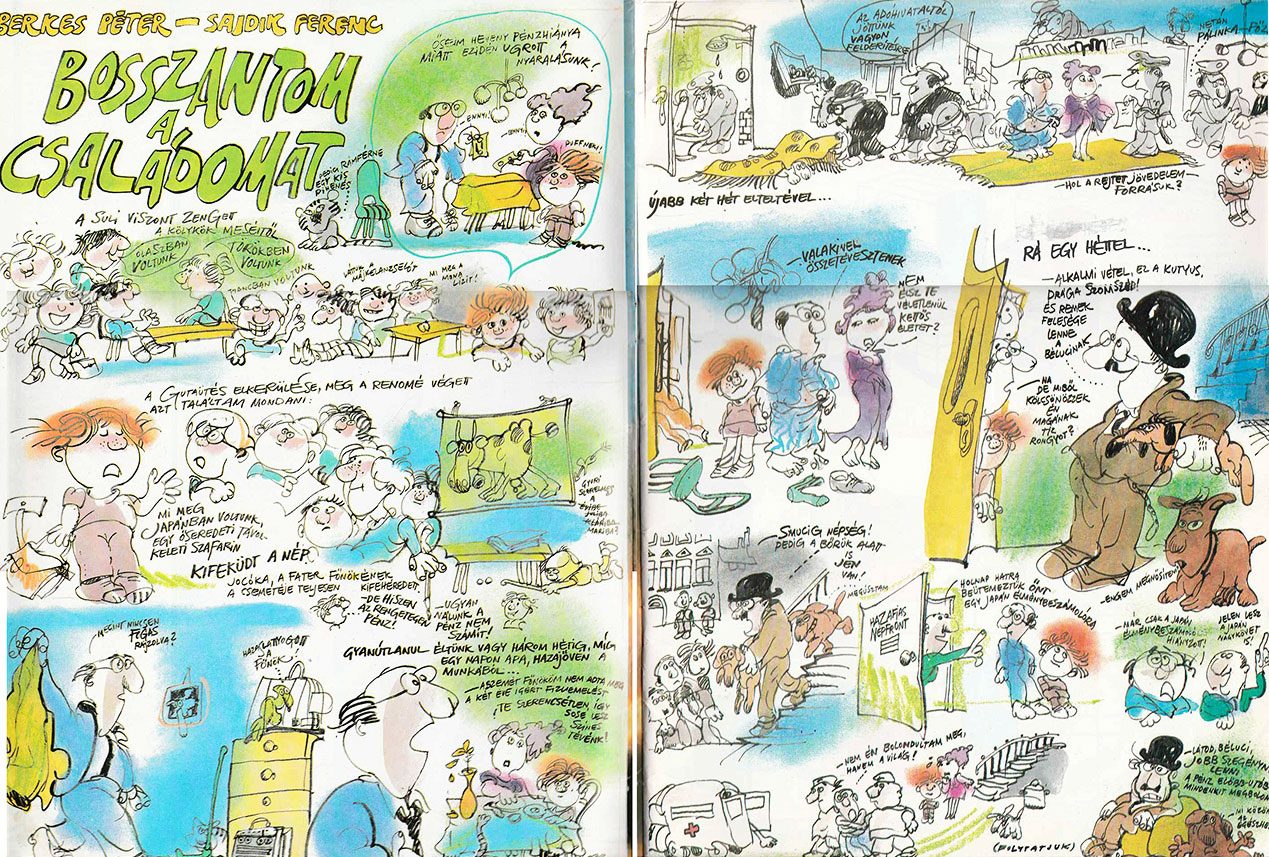 BERKES PÉTER – SAJDIK FERENC
BOSSZANTOM
A
CSALÁDOMAT
ŐSEIM HEVENY PÉNZHIÁNYA
MIATT EZIDÉN UGROTT A
NYARALÁSUNK!
ENNYI
ENNYI
PUFFNEKI!
PEDIG RÁMFÉRNE
EGY KIS
PIHENÉS
A SULI VISZONT ZENGETT
A KÖLYKÖK MESÉITŐL
OLASZBAN
VOLTUNK
TÖRÖKBEN
VOLTUNK
VOLTUNK
MI MEG A
MONA
LISÁT!
A GUTAÜTÉS ELKERÜLÉSE, MEG A RENOMÉ VÉGETT
AZT TALÁLTAM MONDANI:
MI MEG
JAPÁNBAN VOLTUNK,
EGY ŐSEREDETI TÁVOL-
KELETI SZAFARIN
KIFEKÜDT A NÉP.
JOCÓKA, A FATER FŐNÖKÉNEK
A CSEMETÉJE TELJESEN
KIFEHÉREDETT
–DE HISZEN
AZ RENGETEG
PÉNZ!
–UGYAN
NÁLUNK A
PÉNZ NEM
SZÁMÍT!
GYURI
SZERELMES
A
MARIBA?
MEGINT NINCSEN
FOGAS
RAJZOLVA?
FŐNÖK
GYANÚTLANUL ÉLTÜNK VAGY HÁROM HÉTIG, MÍG
EGY NAPON APA, HAZAJÖVEN A
MUNKÁBÓL...
–A SZEMÉT FŐNÖKÖM NEM ADTA MEG
A KÉT ÉVE IGÉRT FIZUEMELÉST
TE SZERENCSÉTLEN, ÍGY
SOSE LESZ
SZÍNES
TÉVÉNK!
AZ ADÓHIVATALTÓL
JÖTTÜNK
VAGYON
FELDERÍTÉSRE
NETÁN
PÁLINKA-FŐZ
–HOL A REJTETT JÖVEDELEM-
FORRÁSUK?
ÚJABB KÉT HÉT ELTELTÉVEL...
–VALAKIVEL
ÖSSZETÉVESZTENEK
NEM
ÉLSZ TE
VÉLETLENÜL
KETTŐS
ÉLETET?
RÁ EGY HÉTTEL...
–ALKALMI VÉTEL, EZ A KUTYUS,
DRÁGA SZOMSZÉD!
ÉS REMEK
FELESÉGE
LENNE
A
BÉLUCINAK
–NA
DE MIBŐL
KÖLCSÖNÖZZEK
ÉN
MAGÁNAK
TÍZ
RONGYOT?
–ENGEM MEGNŐSÍTENI
SMUCIG NÉPSÉG!
PEDIG A BŐRÜK ALATT
IS
JEN
VAN!
MEGÚSZTAM
HAZAFIAS
NÉPFRONT
HOLNAP HATRA
BEÜTEMEZTÜK ÖNT
EGY JAPÁN ÉLMÉNYBESZÁMOLÓRA
–MÁR CSAK A JAPÁN
ÉLMÉNYBESZÁMOLÓ
HIÁNYZOTT!
JELEN LESZ
A JAPÁN
NAGYKÖVET
IS!
–NEM ÉN BOLONDULTAM MEG,
HANEM A VILÁG!
–LÁTOD, BÉLUCI,
JOBB SZEGÉNYNEK
LENNI
A PÉNZ ELŐBB-UTÓBB
MINDENKIT MEGBOLON
(FOLYTATJUK)